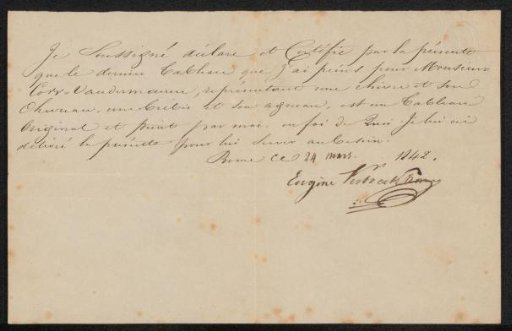 Je Soussigné déclare et Certifie par la présente
que le dernier tableau que j'ai peins pour Monsieur
Corr-Vandermaeren, représentant une chevre et son
Chevreau, une brebis et son agneau, est un tableau
Original et peint par moi, en foi de quoi Je lui ai
délivré la présente pour lui servir au besoin.
ce 24 mars 1842.
Eugène Verboeckhoven